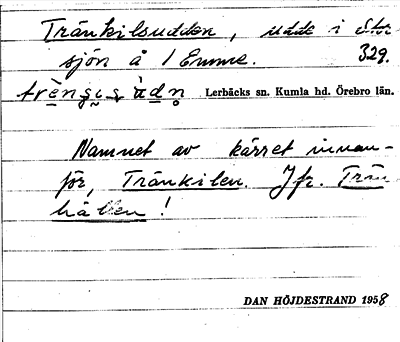 Tränkilsudden, udde i Stor
sjön å 1 Emme. 329.
Lerbäcks sn. Kumla hd. Örebro län.
Namnet av kärret innan-
för, Tränkilen. Jfr. Trän
hällen!
DAN HÖJDESTRAND 1958